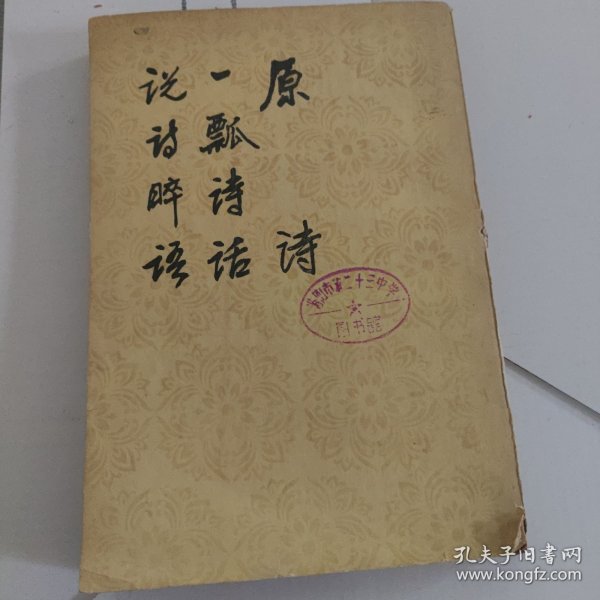 原诗
一瓢诗话
说诗晬语
市第二十三中学
图书馆
孔夫子旧书网
www.kongfz.com